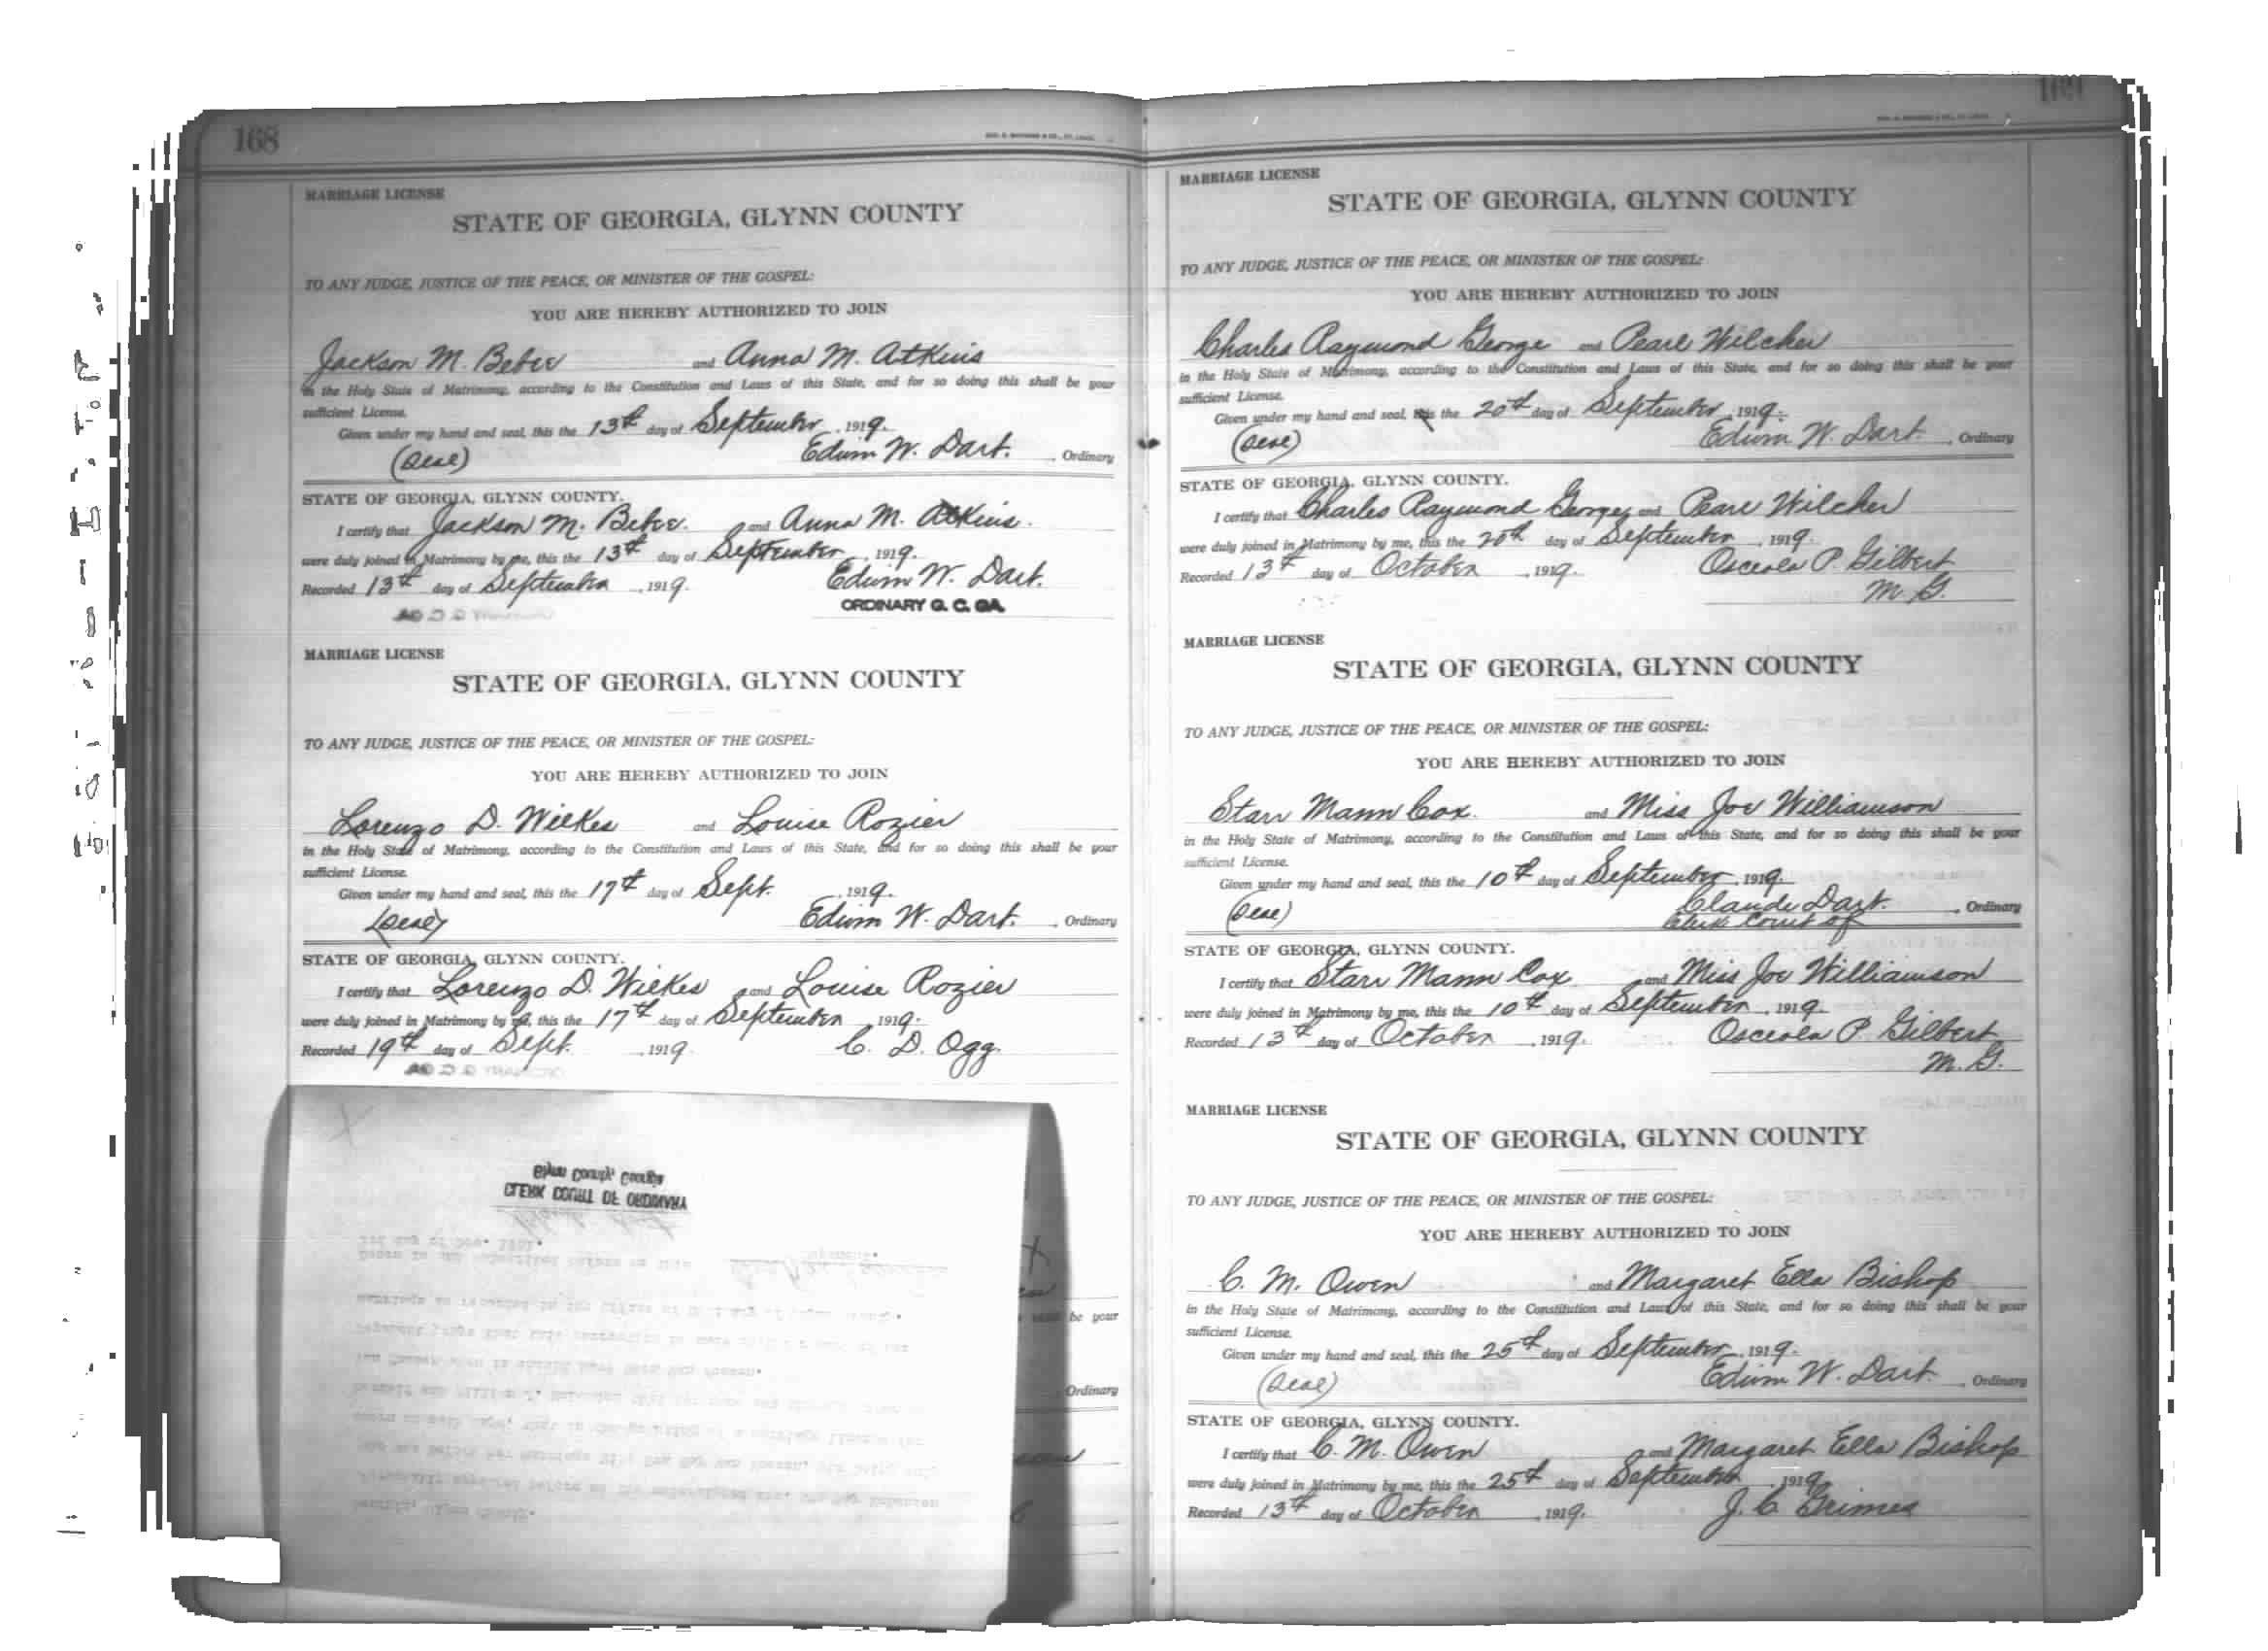 168
MARRIAGE LICENSE
STATE OF GEORGIA, GLYNN COUNTY
TO ANY JUDGE, JUSTICE OF THE PEACE, OR MINISTER OF THE GOSPEL:
YOU ARE HEREBY AUTHORIZED TO JOIN
Jackson M. Beber and Anna M. Atkins
in the Holy State of Matrimony, according to the Constitution and Laws of this State, and for so doing this shall be your
sufficient License.
Given under my hand and seal, this the 13th day of September, 1919.
(Seal) Edwin W. Dart. , Ordinary
STATE OF GEORGIA, GLYNN COUNTY.
I certify that Jackson M. Beber. and Anna M. Atkins.
were duly joined in Matrimony by me, this the 13th day of September, 1919.
Recorded 13th day of September, 1919. Edwin W. Dart.
ORDINARY G. C. GA.
MARRIAGE LICENSE
STATE OF GEORGIA, GLYNN COUNTY
TO ANY JUDGE, JUSTICE OF THE PEACE, OR MINISTER OF THE GOSPEL:
YOU ARE HEREBY AUTHORIZED TO JOIN
Lorenzo D. Wilkes and Louise Rozier
in the Holy State of Matrimony, according to the Constitution and Laws of this State, and for so doing this shall be your
sufficient License.
Given under my hand and seal, this the 17th day of Sept. , 1919.
(Seal) Edwin W. Dart. , Ordinary
STATE OF GEORGIA, GLYNN COUNTY.
I certify that Lorenzo D. Wilkes and Louise Rozier
were duly joined in Matrimony by me, this the 17th day of September, 1919.
Recorded 19th day of Sept. , 1919 C. D. Ogg.
CLERK COURT OF ORDINARY
be your
Ordinary
169
MARRIAGE LICENSE
STATE OF GEORGIA, GLYNN COUNTY
TO ANY JUDGE, JUSTICE OF THE PEACE, OR MINISTER OF THE GOSPEL:
YOU ARE HEREBY AUTHORIZED TO JOIN
Charles Raymond George and Pearl Wilcher
in the Holy State of Matrimony, according to the Constitution and Laws of this State, and for so doing this shall be your
sufficient License.
Given under my hand and seal, this the 20th day of September, 1919.
(Seal) Edwin W. Dart. , Ordinary
STATE OF GEORGIA, GLYNN COUNTY.
I certify that Charles Raymond George and Pearl Wilcher
were duly joined in Matrimony by me, this the 20th day of September, 1919.
Recorded 13th day of October, 1919. Osceola P. Gilbert
M. G.
MARRIAGE LICENSE
STATE OF GEORGIA, GLYNN COUNTY
TO ANY JUDGE, JUSTICE OF THE PEACE, OR MINISTER OF THE GOSPEL:
YOU ARE HEREBY AUTHORIZED TO JOIN
Starr Mann Cox. and Miss Joe Williamson
in the Holy State of Matrimony, according to the Constitution and Laws of this State, and for so doing this shall be your
sufficient License.
Given under my hand and seal, this the 10th day of September, 1919.
(Seal) Claude Dart. , Ordinary
Clerk Court of
STATE OF GEORGIA, GLYNN COUNTY.
I certify that Starr Mann Cox and Miss Joe Williamson
were duly joined in Matrimony by me, this the 10th day of September, 1919.
Recorded 13th day of October, 1919. Osceola P. Gilbert
M. G.
MARRIAGE LICENSE
STATE OF GEORGIA, GLYNN COUNTY
TO ANY JUDGE, JUSTICE OF THE PEACE, OR MINISTER OF THE GOSPEL:
YOU ARE HEREBY AUTHORIZED TO JOIN
C. M. Owen and Margaret Ella Bishop
in the Holy State of Matrimony, according to the Constitution and Laws of this State, and for so doing this shall be your
sufficient License.
Given under my hand and seal, this the 25th day of September, 1919.
(Seal) Edwin W. Dart. , Ordinary
STATE OF GEORGIA, GLYNN COUNTY.
I certify that C. M. Owen and Margaret Ella Bishop
were duly joined in Matrimony by me, this the 25th day of September, 1919.
Recorded 13th day of October, 1919. J. C. Grimes